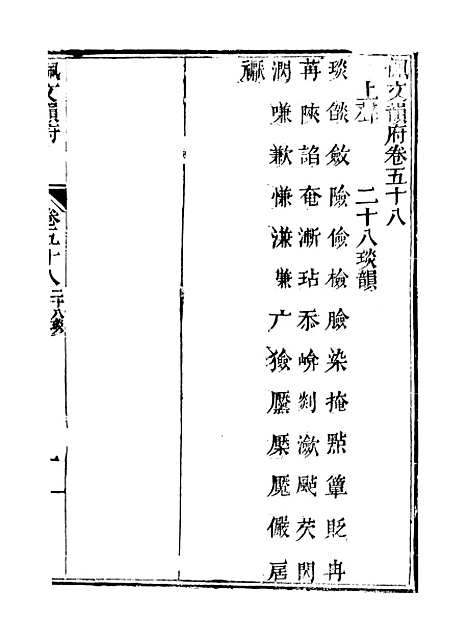 佩文韻府卷五十八
上聲 二十八琰韻
琰燄斂險儉檢臉染掩點簟貶冉
苒陝諂奄漸玷忝崦剡瀲颭芡閃
閃嗛歉慊溓㡘广獫黶檿魘儼扊
㺌
佩文韻府
卷五十八 二十八琰
一